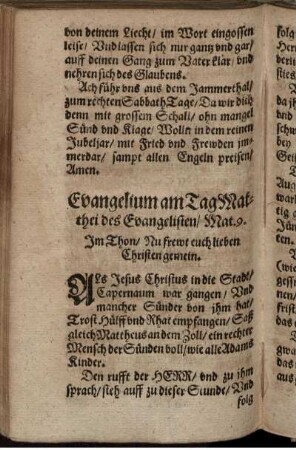 von deinem Liecht/ im Wort eingossen
leise/ Vnd lassen sich nur gantz vnd gar/
auff deinen Gang zum Vater klär/ vnd
nehren sich des Glaubens.
Ach führ vns aus dem Jammerthal/
zum rechten Sabbath Tage/ Da wir dich
denn mit grossem Schall/ ohn mangel
Sünd vnd Klage/ Wolln in dem reinen
Jubeljar/ mit Fried vnd Frewden im-
merdar/ sampt allen Engeln preisen/
Amen.
Evangelium am Tag Mat-
thei des Evangelisten/ Mat. 9.
Im Thon/ Nu frewt euch lieben
Christen gemein.
ALs Jesus Christus in die Stadt/
Capernaum war gangen/ Vnd
mancher Sünder von ihm hat/
Trost Hülff vnd Rhat empfangen/ Saß
gleich Mattheus an dem Zoll/ ein rechter
Mensch der Sünden voll/ wie alle Adams
Kinder.
Den rufft der HERR/ vnd zu ihm
sprach/ steh auff zu dieser Stunde/ Vnd
folg